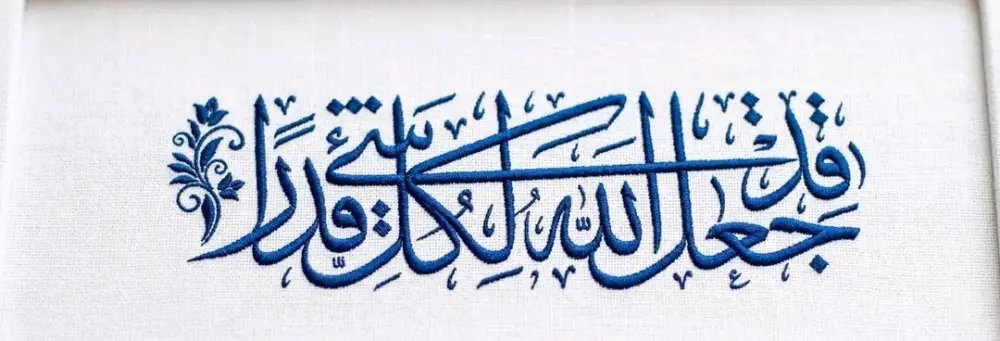 قد جعل الله لكل شيء قدرا